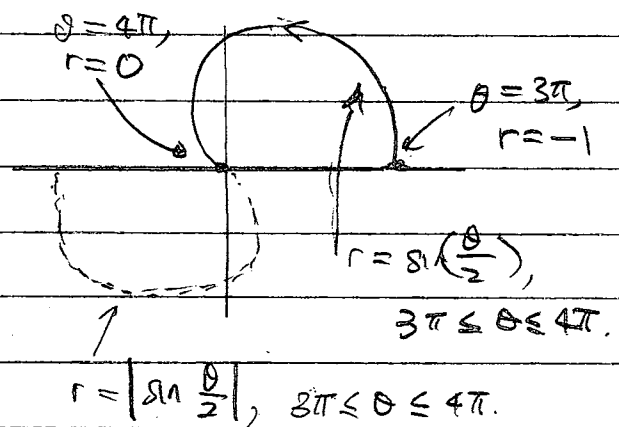 θ = 4π,
r = 0
θ = 3π,
r = -1
r = sin(θ/2),
3π ≤ θ ≤ 4π.
r = |sin θ/2|, 3π ≤ θ ≤ 4π.